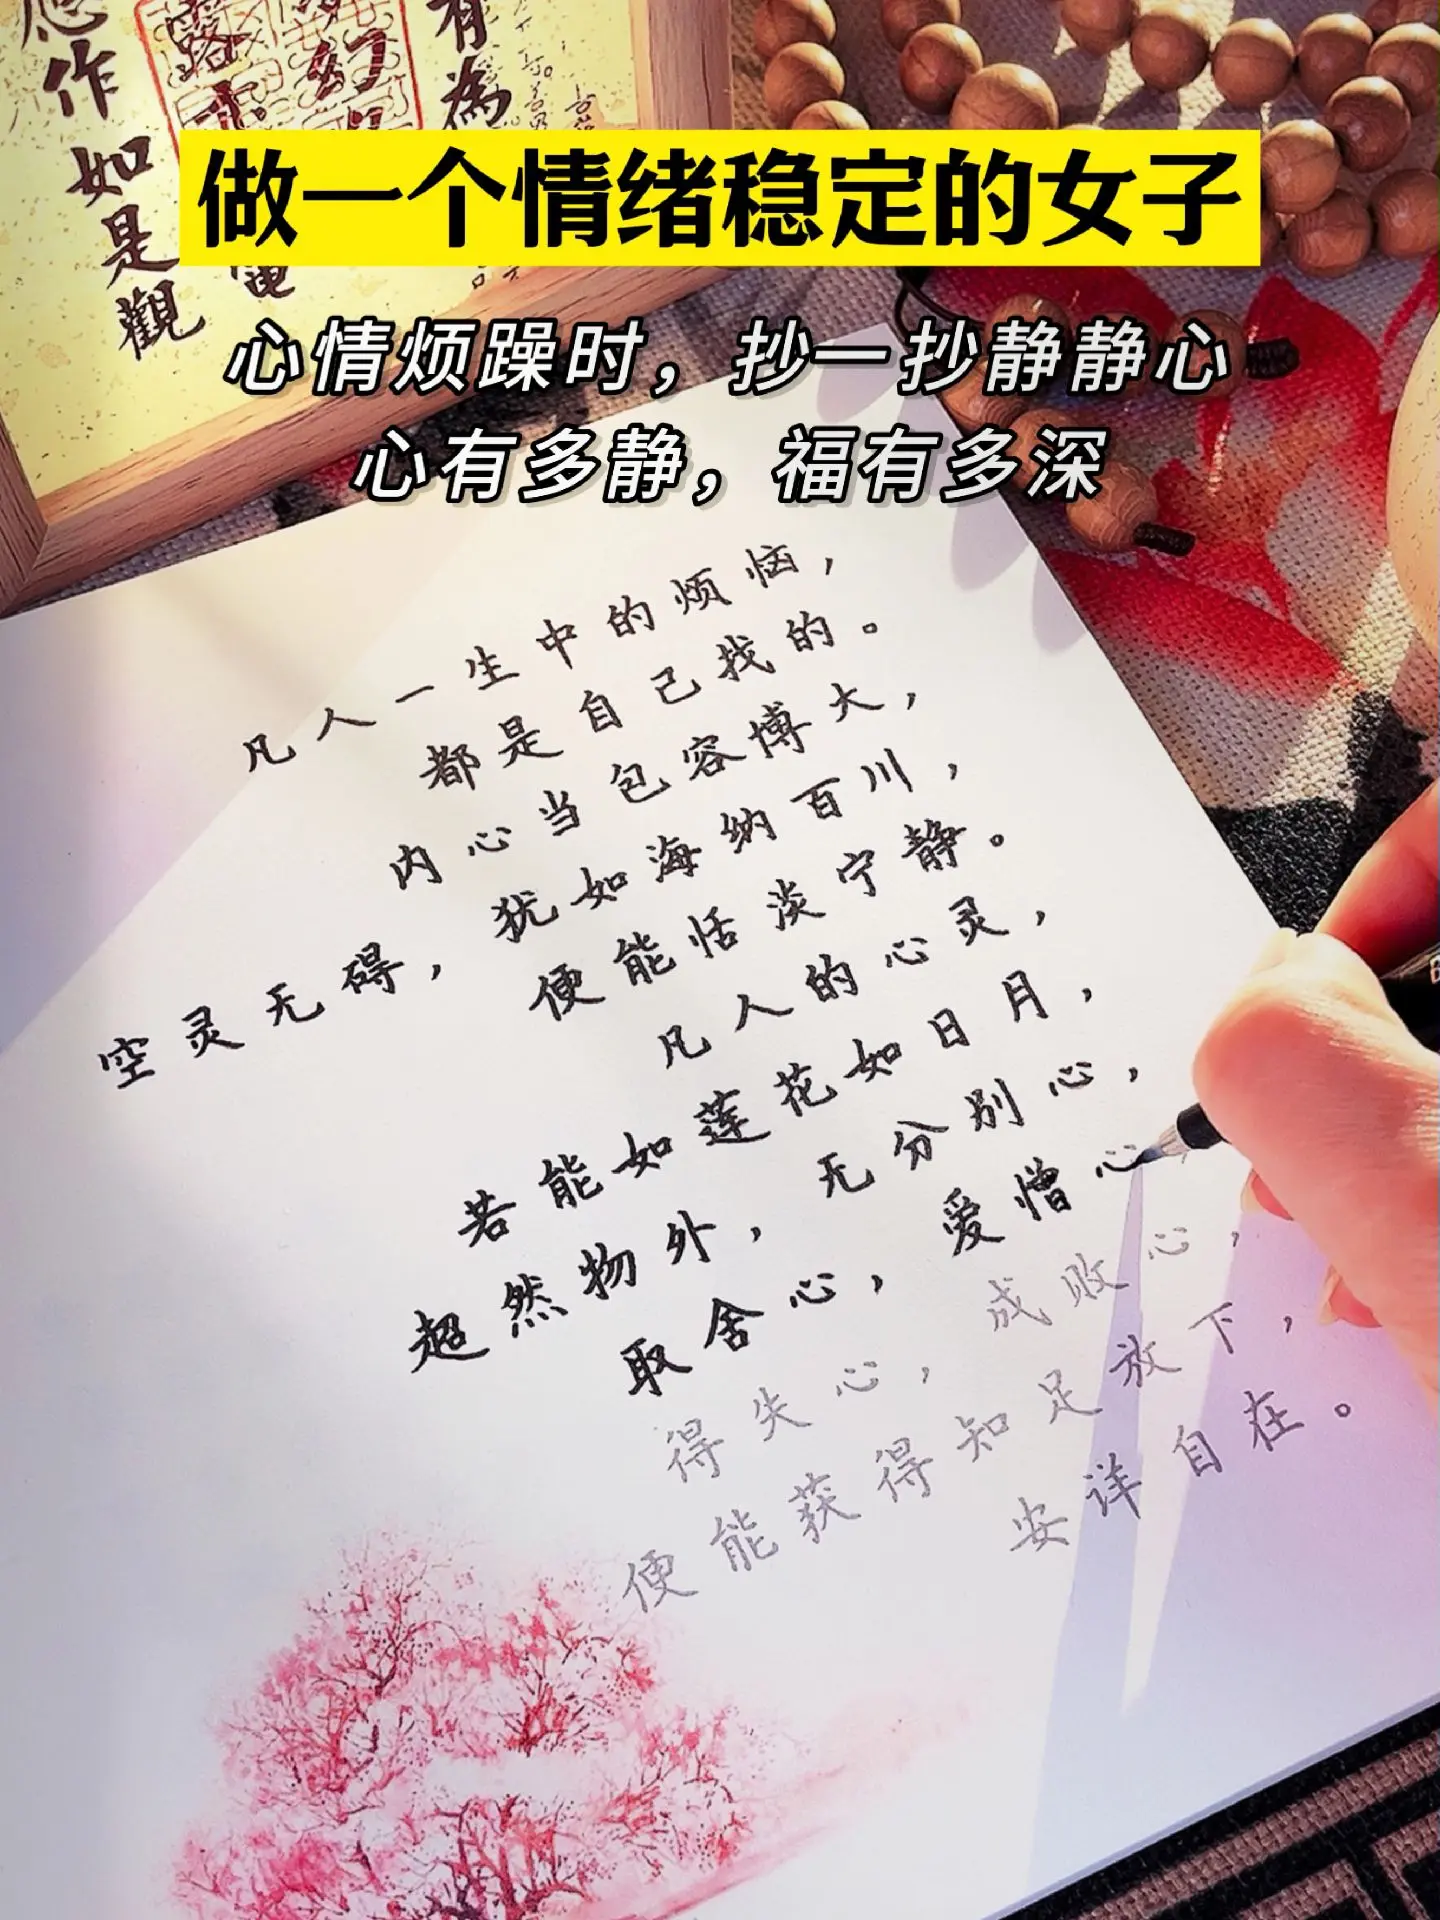 做一个情绪稳定的女子
心情烦躁时，抄一抄静静心
心有多静，福有多深
有為
作如是觀
凡人一生中的烦恼，
都是自己找的。
内心当包容博大，
空灵无碍，犹如海纳百川，
便能恬淡宁静。
凡人的心灵，
若能如莲花如日月，
超然物外，无分别心，
取舍心，爱憎心
得失心，成败心，
便能获得知足放下，
安详自在。